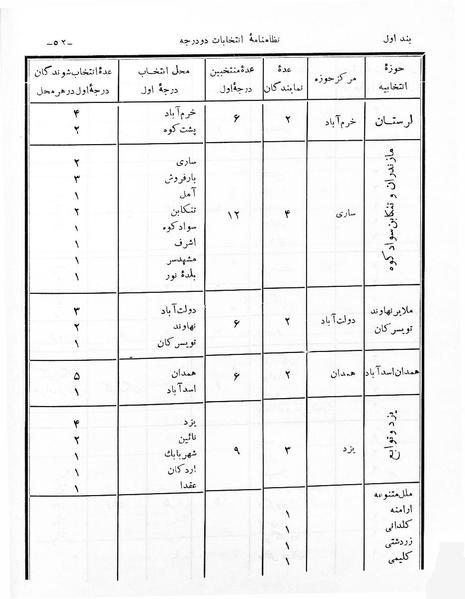 بند اول
نظامنامهٔ انتخابات دودرجه
–۵۲–
حوزهٔ انتخابیه | مرکزحوزه | عدهٔ نمایندگان | عدهٔ منتخبین درجهٔ اول | محل انتخاب درجهٔ اول | عدهٔ انتخاب شوندگان درجهٔ اول در هر محل
لرستان | خرم‌آباد | ۲ | ۶ | خرم‌آباد | ۴
پشت‌کوه | ۲
مازندران و تنکابن سوادکوه | ساری | ۴ | ۱۲ | ساری | ۲
بارفروش | ۳
آمل | ۱
تنکابن | ۲
سوادکوه | ۱
اشرف | ۱
مشهدسر | ۱
بلدهٔ نور | ۱
ملایر نهاوند تویسرکان | دولت‌آباد | ۲ | ۶ | دولت‌آباد | ۳
نهاوند | ۲
تویسرکان | ۱
همدان اسدآباد | همدان | ۲ | ۶ | همدان | ۵
اسدآباد | ۱
یزد و توابع | یزد | ۳ | ۹ | یزد | ۴
نائین | ۲
شهربابك | ۱
اردکان | ۱
عقدا | ۱
ملل متنوعه
ارامنه | ۱
کلدانی | ۱
زردشتی | ۱
کلیمی | ۱